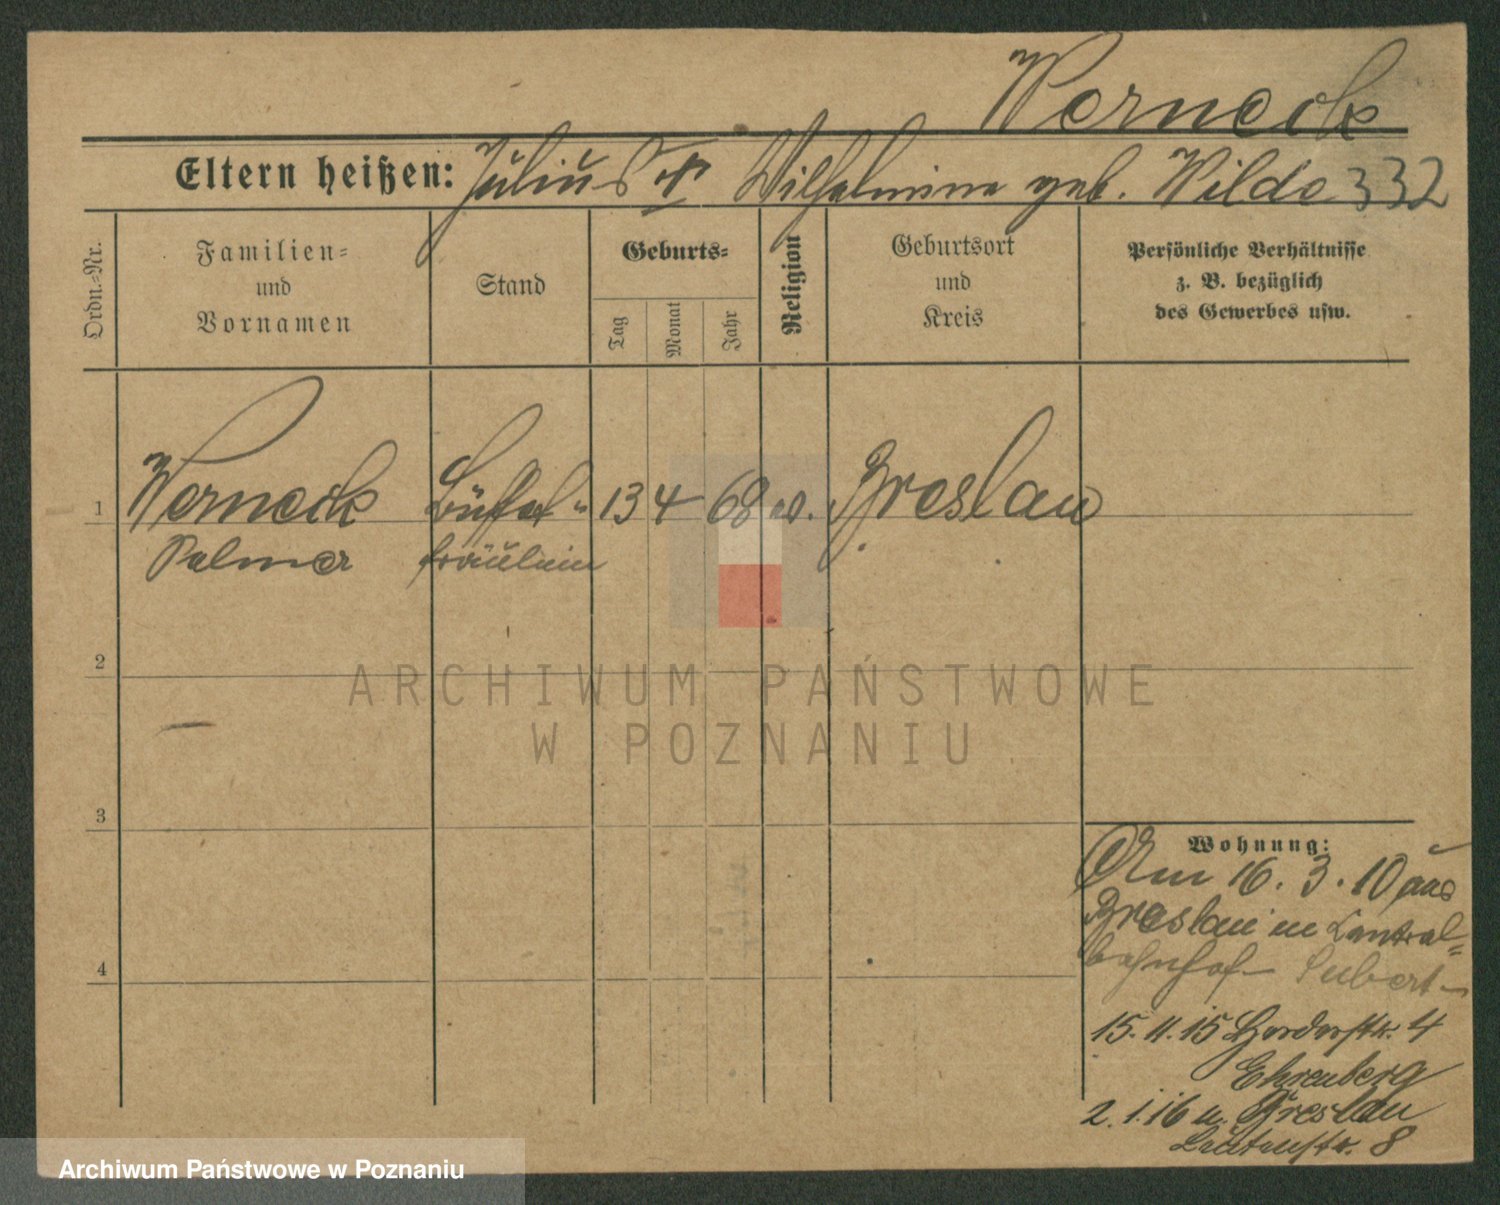 Werneck
Eltern heißen: Julius u. Wilhelmine geb. Wilde 332
Ordn.-Nr.
Familien-
und
Vornamen
Stand
Geburts-
Tag
Monat
Jahr
Religion
Geburtsort
und
Kreis
Persönliche Verhältnisse
z. B. bezüglich
des Gewerbes usw.
1 Werneck Büffet- 13 4 68 ev. Breslau
fräulein
2
3
4
Wohnung:
Am 16. 3. 10 aus
Breslau in Central-
bahnhof
15. 11. 15 Herderstr. 4
Ehrenberg
2. 1. 16 n. Breslau
8
ARCHIWUM PAŃSTWOWE
W POZNANIU
Archiwum Państwowe w Poznaniu